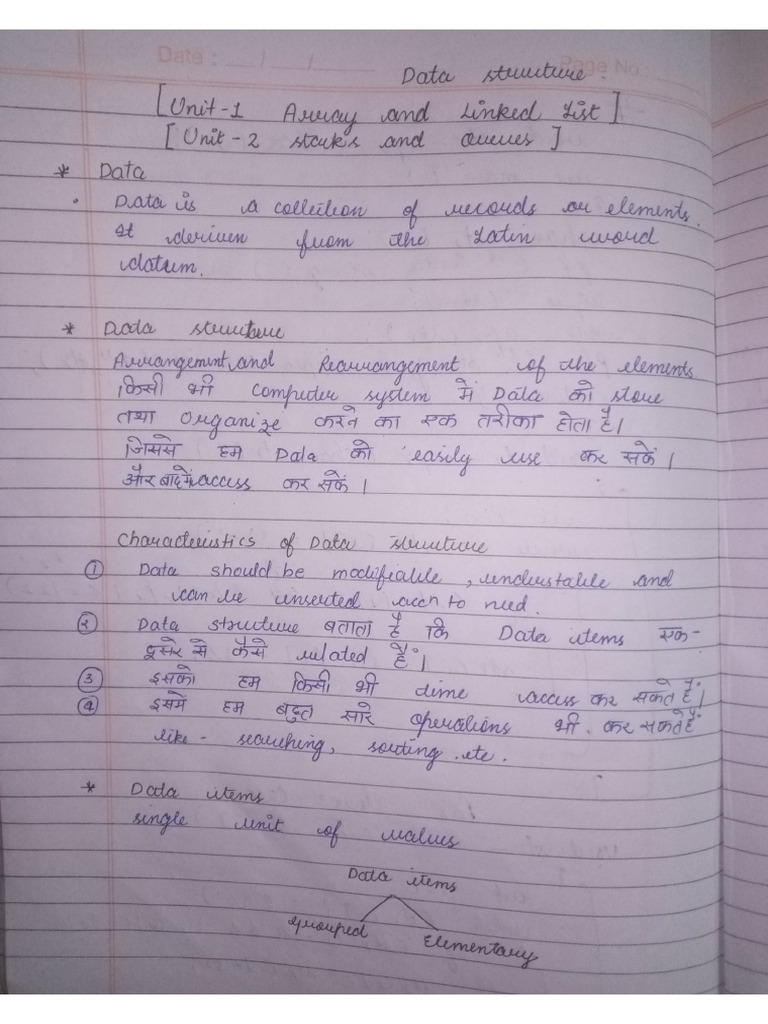 Date : __/__/__ Page No
Data structure.
[Unit-1 Array and Linked List]
[Unit-2 stacks and Queues]
* Data
• Data is a collection of records or elements.
It deriven from the Latin word
datum.
* Data structure
Arrangement and Rearrangement of the elements
किसी भी computer system में Data को store
तथा organize करने का एक तरीका होता है।
जिससे हम Data को easily use कर सकें।
और बाद में access कर सकें।
Characteristics of Data structure
① Data should be modifiable, understable and
can be inserted accn to need.
② Data structure बताता है कि Data items एक-
दूसरे से कैसे related हैं।
③ इसको हम किसी भी time access कर सकते हैं।
④ इसमें हम बहुत सारे operations भी कर सकते हैं
like - searching, sorting etc.
* Data items
single unit of values
Data items
Grouped Elementary